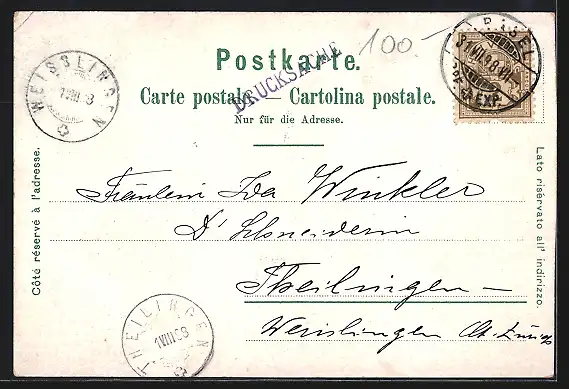 Postkarte.
100.-
DRUCKSACHE
Carte postale. — Cartolina postale.
Nur für die Adresse.
BASEL
31.VII.98.VII
EXP.
WEISSLINGEN
1 VIII 98
Côté réservé à l'adresse.
Lato riservato all' indirizzo.
Fräulein Ida Winkler
D' Schneiderin
Theilingen
Weisslingen Ct. Zürich
THEILINGEN
1 VIII 98